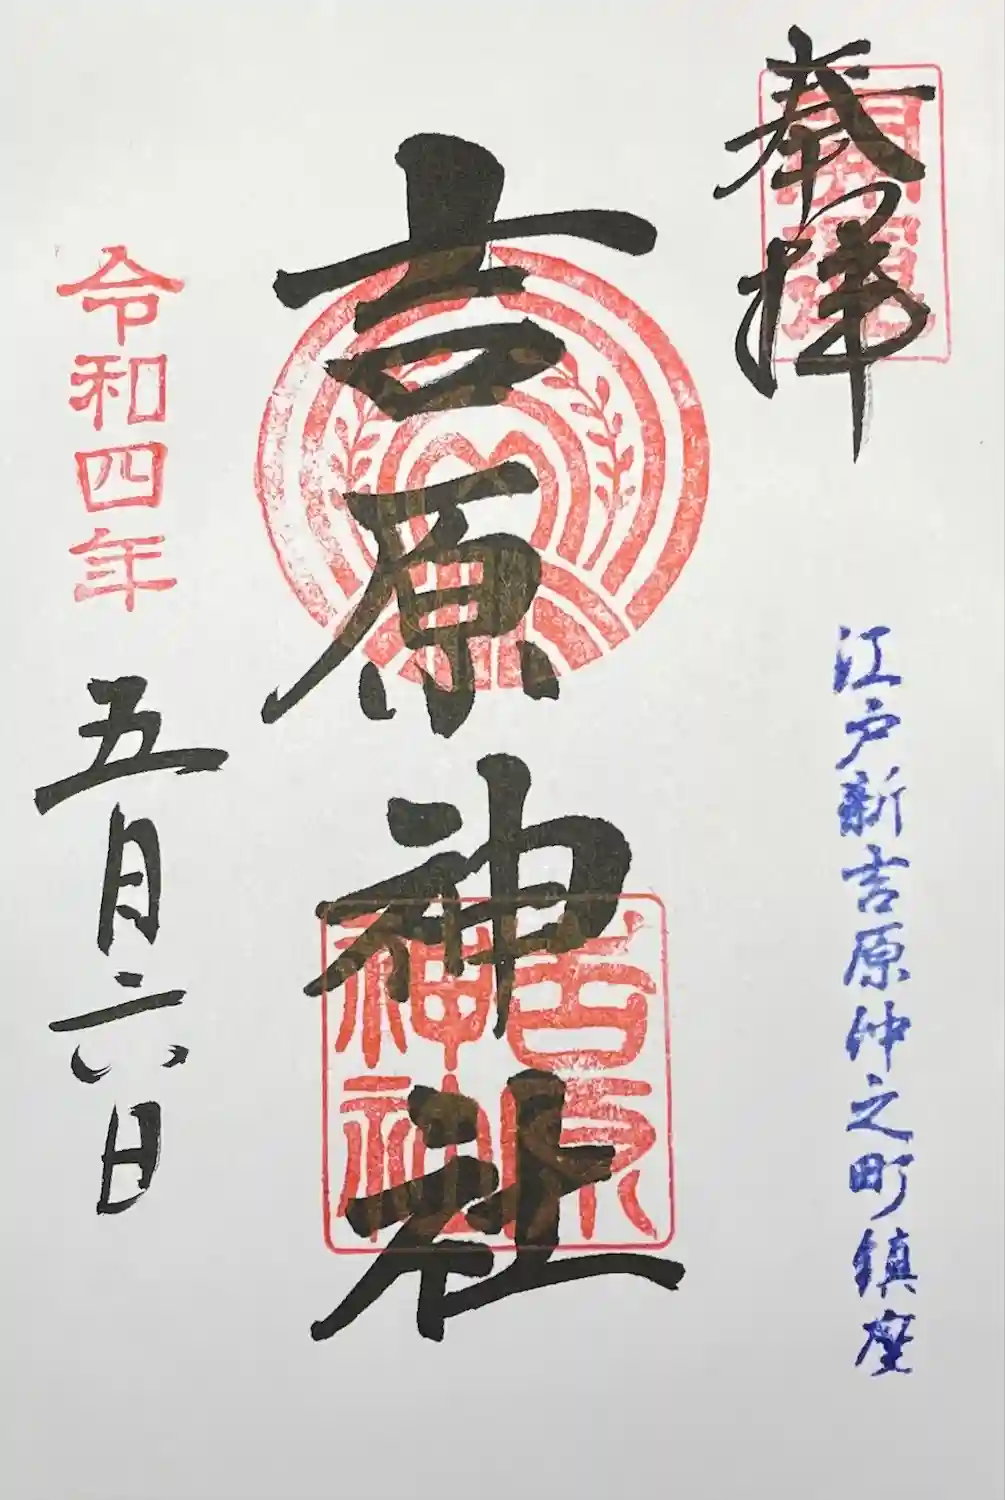 奉拝
開運
江戸新吉原仲之町鎮座
吉原神社
吉原
神社
令和四年
五月六日